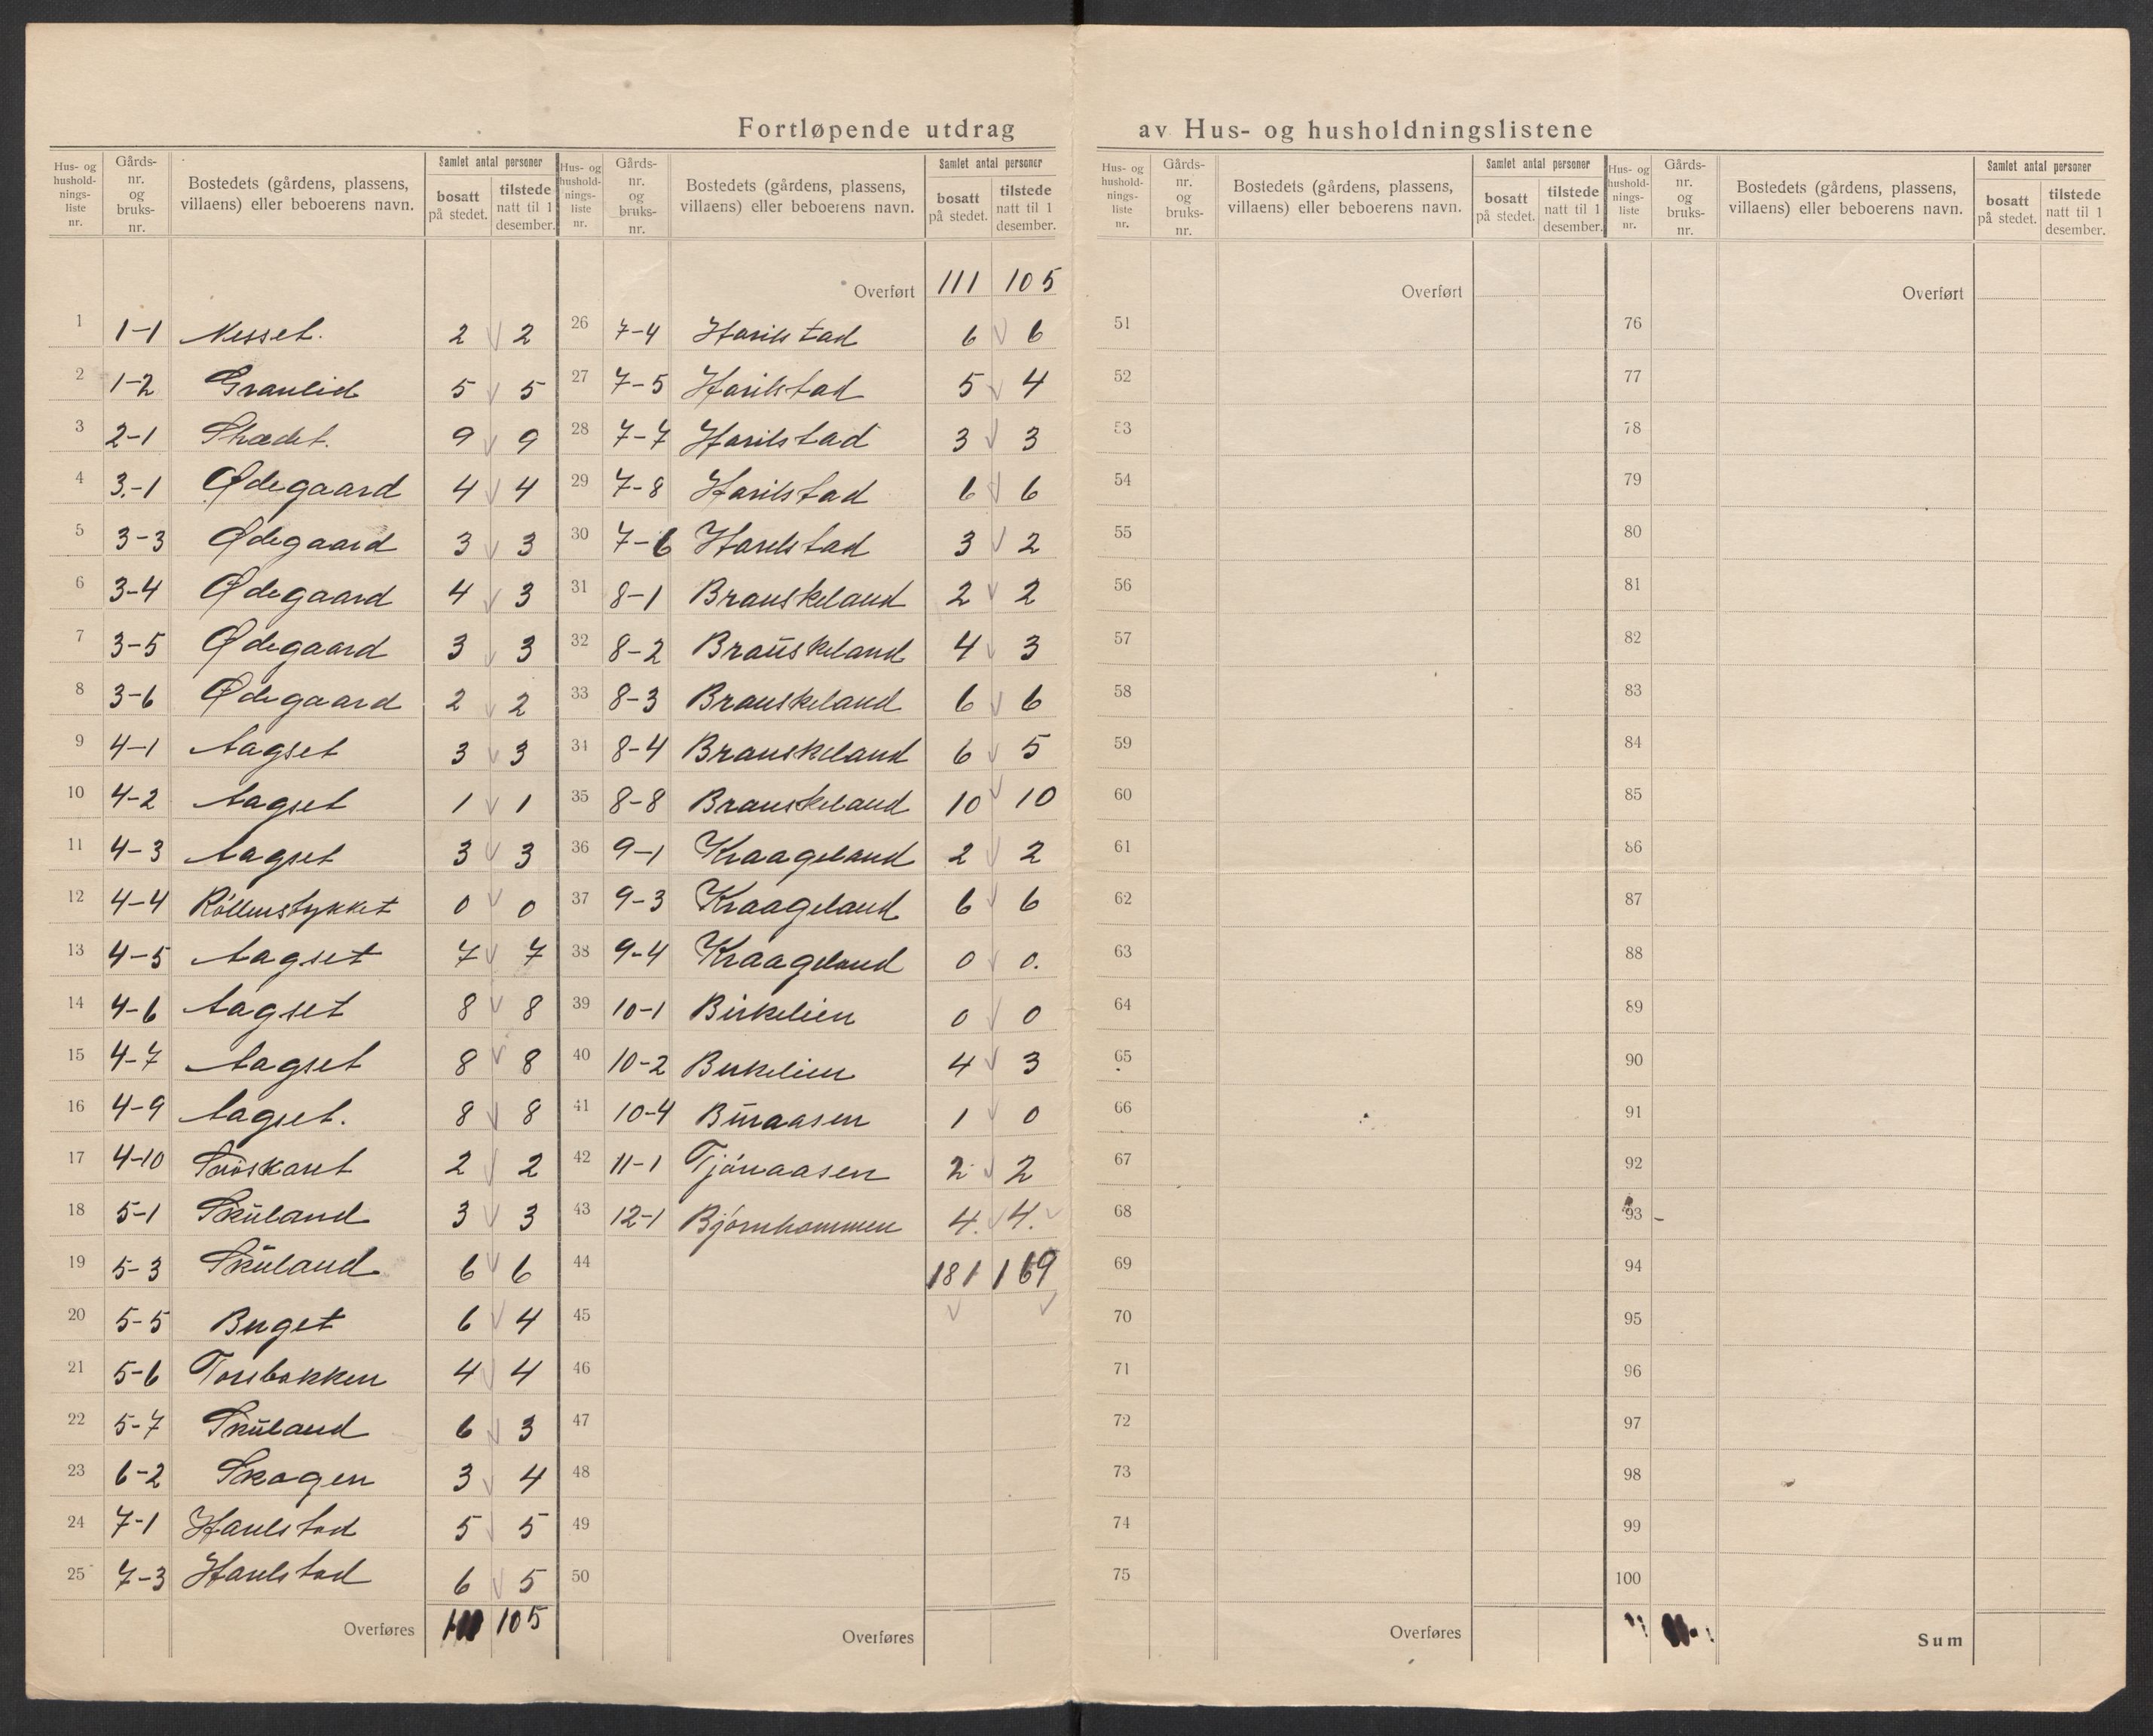 Fortløpende utdrag av Hus- og husholdningslistene
Hus- og hushold-nings-liste nr. Gårds-nr. og bruks-nr. Bostedets (gårdens, plassens, villaens) eller beboerens navn. Samlet antal personer bosatt på stedet. tilstede natt til 1 desember.
1 1-1 Nesset. 2 2
2 1-2 Granlid 5 5
3 2-1 9 9
4 3-1 Ødegaard 4 4
5 3-3 Ødegaard 3 3
6 3-4 Ødegaard 4 3
7 3-5 Ødegaard 3 3
8 3-6 Ødegaard 2 2
9 4-1 Aagset 3 3
10 4-2 Aagset 1 1
11 4-3 Aagset 3 3
12 4-4 0 0
13 4-5 Aagset 7 7
14 4-6 Aagset 8 8
15 4-7 Aagset 8 8
16 4-9 Aagset. 8 8
17 4-10 2 2
18 5-1 Skuland 3 3
19 5-3 Skuland 6 6
20 5-5 6 4
21 5-6 4 4
22 5-7 Skuland 6 3
23 6-2 Skogen 3 4
24 7-1 Harilstad 5 5
25 7-3 Harilstad 6 5
Overføres 111 105
Hus- og hushold-nings-liste nr. Gårds-nr. og bruks-nr. Bostedets (gårdens, plassens, villaens) eller beboerens navn. Samlet antal personer bosatt på stedet. tilstede natt til 1 desember.
Overført 111 105
26 7-4 Harilstad 6 6
27 7-5 Harilstad 5 4
28 7-7 Harilstad 3 3
29 7-8 Harilstad 6 6
30 7-6 Harilstad 3 2
31 8-1 Brauskeland 2 2
32 8-2 Brauskeland 4 3
33 8-3 Brauskeland 6 6
34 8-4 Brauskeland 6 5
35 8-8 Brauskeland 10 10
36 9-1 Kraageland 2 2
37 9-3 Kraageland 6 6
38 9-4 Kraageland 0 0.
39 10-1 Birkelien 0 0
40 10-2 Birkelien 4 3
41 10-4 1 0
42 11-1 Tjónaasen 2 2
43 12-1 4. 4.
44 181 169
45
46
47
48
49
50
Overføres
Hus- og hushold-nings-liste nr. Gårds-nr. og bruks-nr. Bostedets (gårdens, plassens, villaens) eller beboerens navn. Samlet antal personer bosatt på stedet. tilstede natt til 1 desember.
Overført
51
52
53
54
55
56
57
58
59
60
61
62
63
64
65
66
67
68
69
70
71
72
73
74
75
Overføres
Hus- og hushold-nings-liste nr. Gårds-nr. og bruks-nr. Bostedets (gårdens, plassens, villaens) eller beboerens navn. Samlet antal personer bosatt på stedet. tilstede natt til 1 desember.
Overført
76
77
78
79
80
81
82
83
84
85
86
87
88
89
90
91
92
93
94
95
96
97
98
99
100
Sum